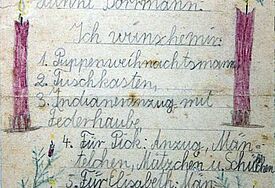 Ich wünsche mir
1. Puppenweihnachtsmann
2. Tuschkasten,
3. Indianeranzug mit
Federhaube
4. Für Pick: Anzug, Män-
telchen, Mützchen u. Schuhchen
5. Für Elisabeth: Man-